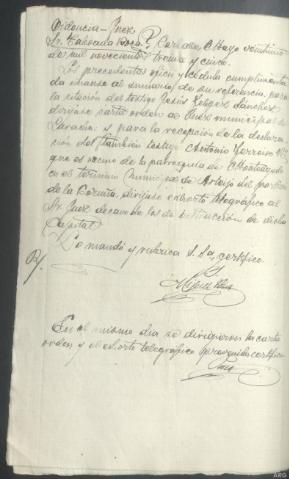 Providencia - Juez
Sr. Taboada Roca. Carballo Mayo veintiuno
de mil novecientos treinta y cinco.
Los precedentes oficio y cédula cumplimenta
da únanse al sumario de su referencia, para
la citación del testigo Jesús Sánchez
diríjase carta orden al Juez municipal de
Laracha y para la recepción de la declara
ción del también testigo Antonio Ferroso
que es vecino de la parroquia de Monteagudo
en el término municipal de Arteijo del partido
de la Coruña, diríjase exhorto telegráfico al
Sr. Juez decano de los de instrucción de dicha
Capital.
Lo mandó y rubrica S. Sa, certifico.
En el mismo día se dirigieron la carta
orden y el exhorto telegráfico prevenidos certifico